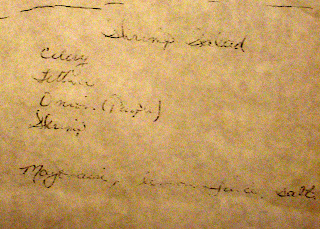 Shrimp Salad
Celery
Lettuce
Onion (Purple)
Shrimp
Mayonaise, lemon juice, salt